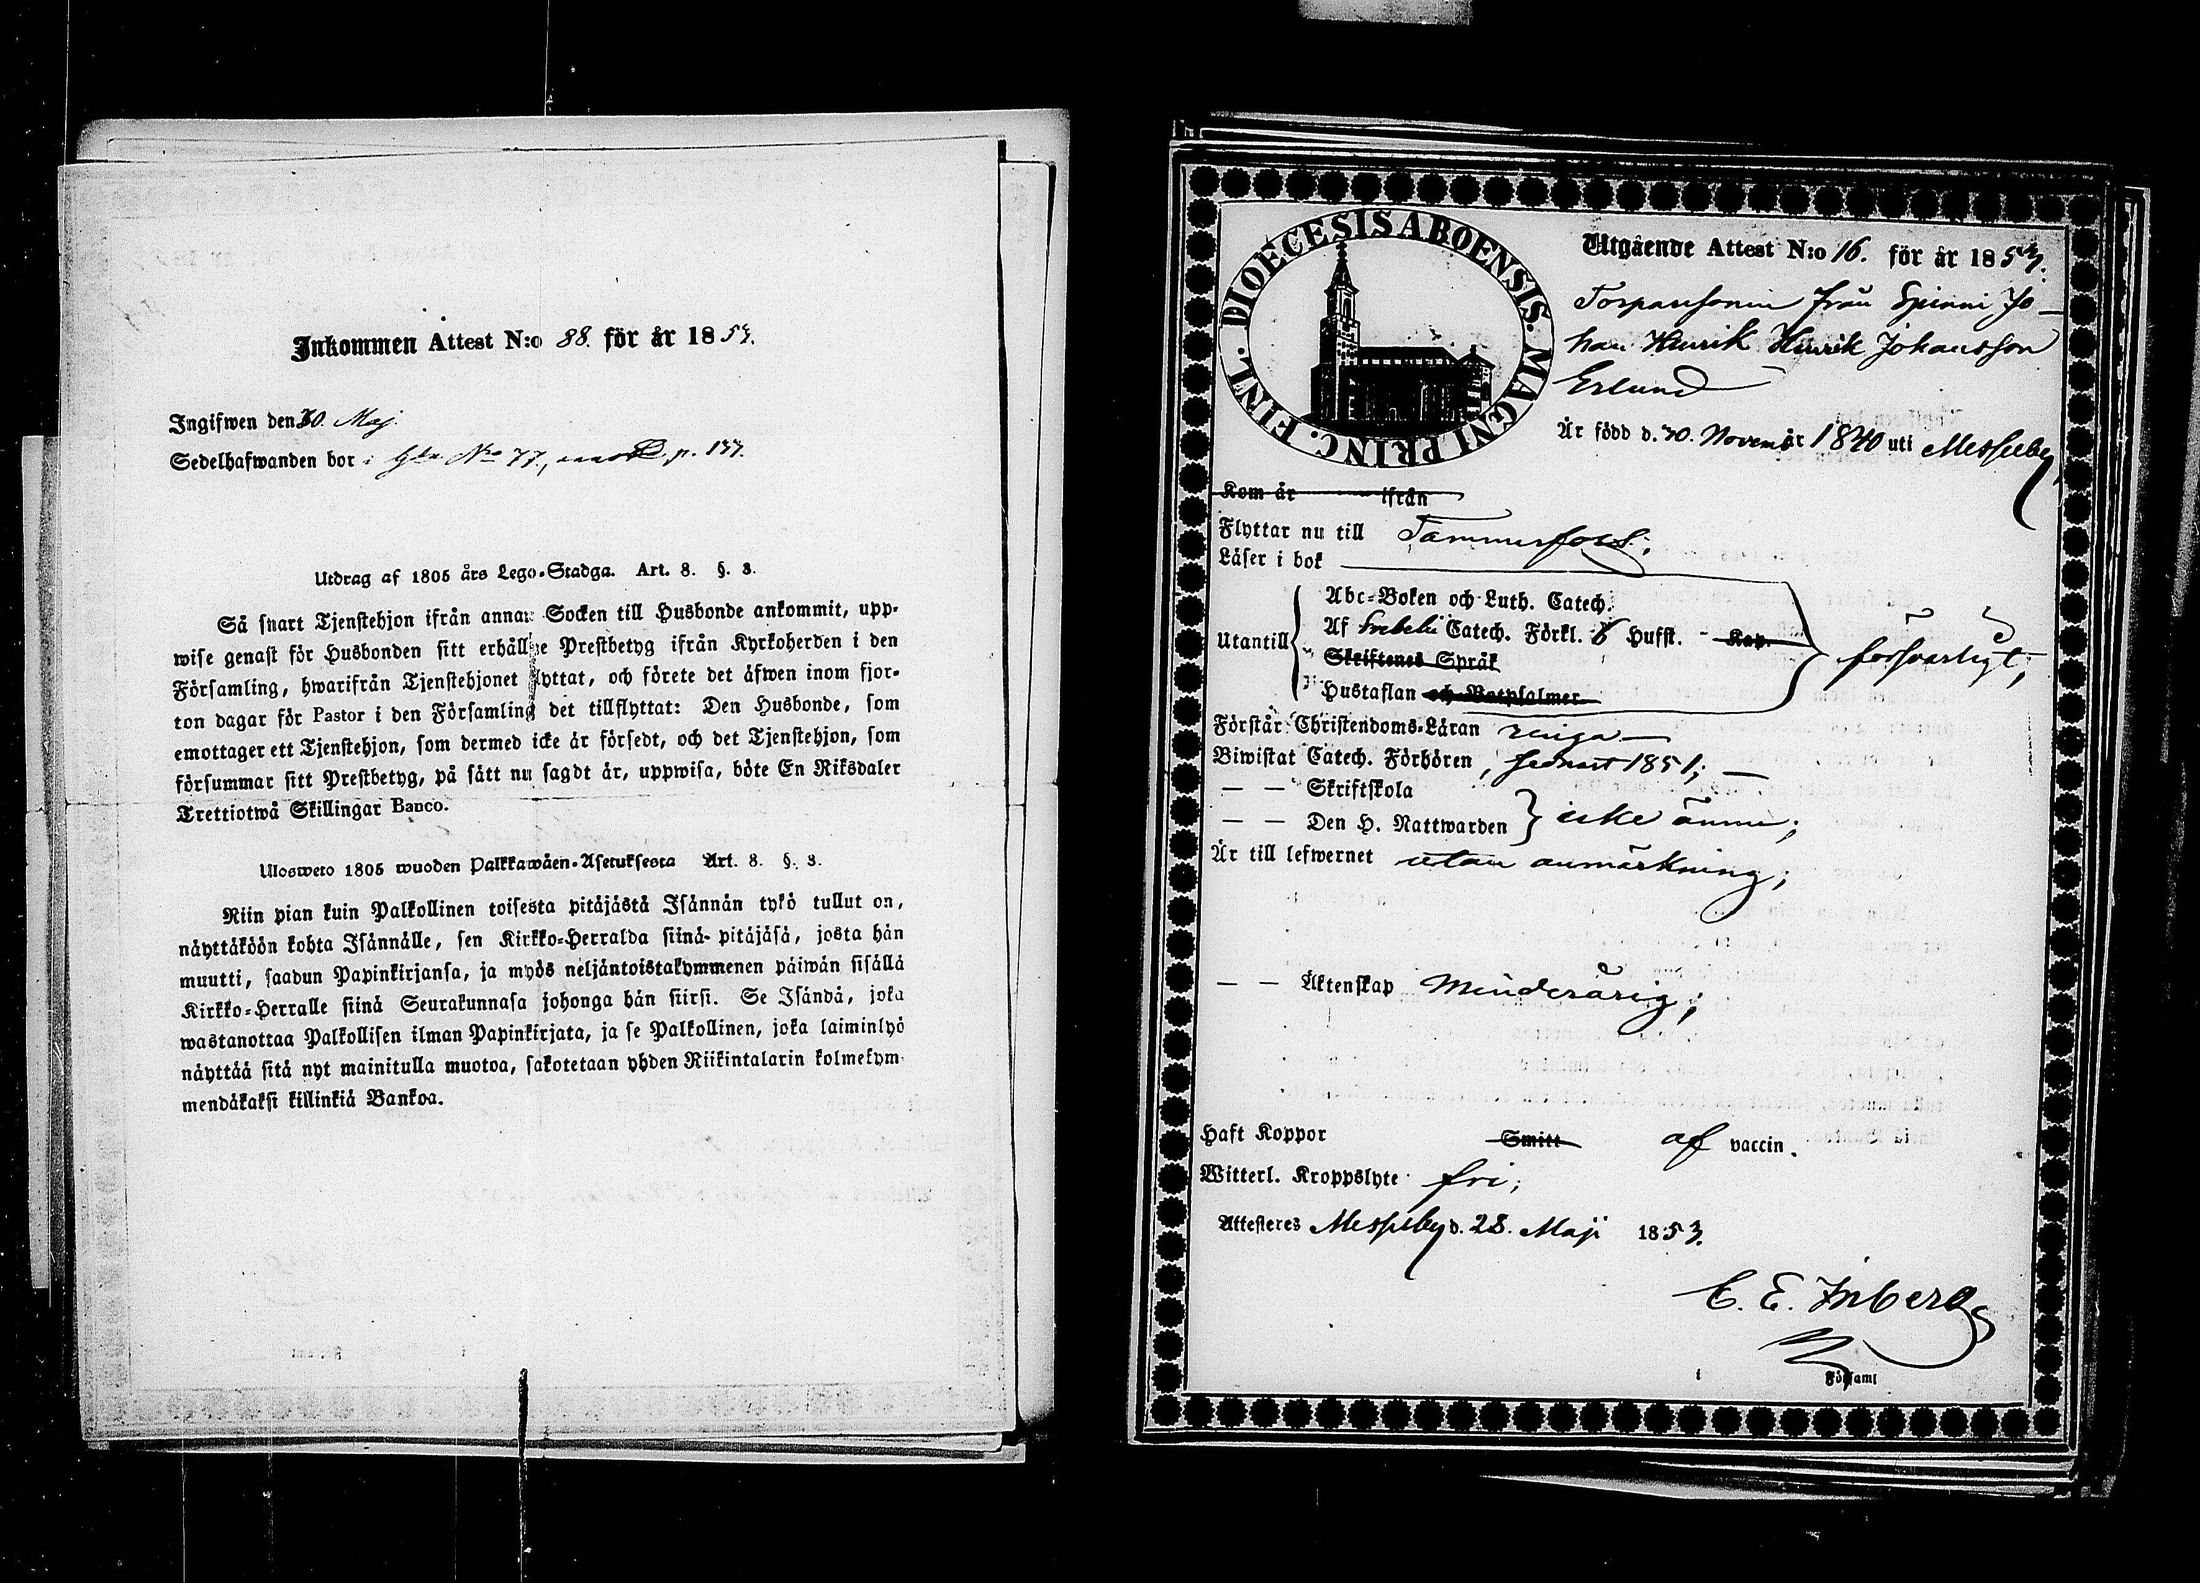 Inkommen Attest N:o 88. för år 1853.
Ingifwen den 30. Maj.
Sedelhafwanden bor i Gln No 77, p. 137.
Utdrag af 1805 års Lego-Stadga. Art. 8. §. 3.
Så snart Tjenstehjon ifrån annan Socken till Husbonde ankommit, upp-
wise genast för Husbonden sitt erhållne Prestbetyg ifrån Kyrkoherden i den
Församling, hwarifrån Tjenstehjonet flyttat, och förete det äfwen inom fjor-
ton dagar för Pastor i den Församling det tillflyttat: Den Husbonde, som
emottager ett Tjenstehjon, som dermed icke är försedt, och det Tjenstehjon, som
försummar sitt Prestbetyg, på sätt nu sagdt är, uppwisa, böte En Riksdaler
Trettiotwå Skillingar Banco.
Ulosweto 1805 wuoden Palkkawäen-Asetuksesta Art. 8. §. 3.
Niin pian kuin Palkollinen toisesta pitäjästä Isännän tykö tullut on,
näyttäköön kohta Isännälle, sen Kirkko-Herralda siinä pitäjäsä, josta hän
muutti, saadun Papinkirjansa, ja myös neljäntoistakymmenen päiwän sisällä
Kirkko-Herralle siinä Seurakunnasa johonga hän siirsi. Se Isändä, joka
wastanottaa Palkollisen ilman Papinkirjata, ja se Palkollinen, joka laiminlyö
näyttää sitä nyt mainitulla muotoa, sakotetaan yhden Riikintalarin kolmekym-
mendäkaksi killinkiä Bankoa.
DIOECESIS ABOENSIS. MAGNI PRINC. FINL.
Utgående Attest N:o 16. för år 1853.
Torparesonen från Spinni Jo-
han Henrik Henrik Johansson
Erlund
Är född d. 30. Novemb år 1840 uti Messuby
Kom år ifrån
Flyttar nu till Tammerfors;
Läser i bok
Abc-Boken och Luth. Catech.
Utantill Af Svebelii Catech. Förkl. 6 Hufst. Kap.
Skriftenes Språk
Hustaflan och Botpsalmer
försvarligt;
Förstår Christendoms-Läran ringa
Biwistat Catech. Förhören, senast 1851;
— — Skriftskola
— — Den H. Nattwarden icke ännu;
Är till lefwernet utan anmärkning;
— — Äktenskap Minderårig;
Haft Koppor Smitt af vaccin.
Witterl. Kroppslyte fri;
Attesteres Messuby d. 28. Maji 1853.
C. E. Inberg
i Församl